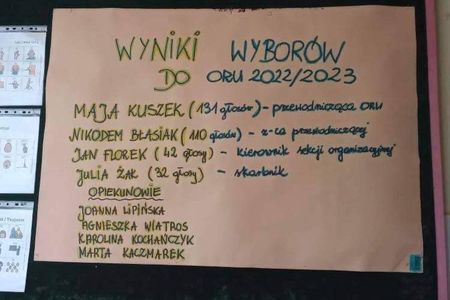 WYNIKI WYBORÓW
DO ORU 2022/2023
MAJA KUSZEK (131 głosów) - przewodnicząca ORU
NIKODEM BŁASIAK (110 głosów) - z-ca przewodniczącej
JAN FLOREK (42 głosy) - kierownik sekcji organizacyjnej
JULIA ŻAK (32 głosy) - skarbnik
OPIEKUNOWIE
JOANNA LIPIŃSKA
AGNIESZKA WIATROS
KAROLINA KOCHAŃCZYK
MARTA KACZMAREK